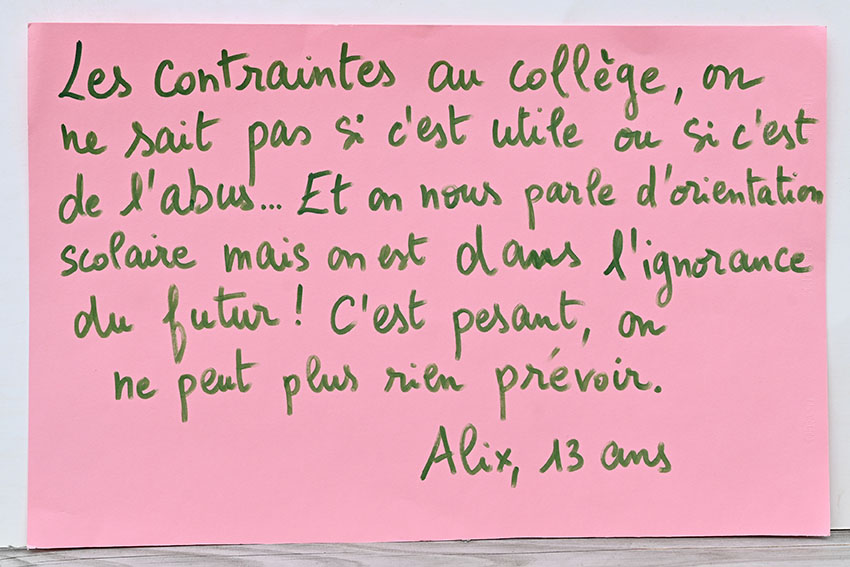 Les contraintes au collège, on
ne sait pas si c'est utile ou si c'est
de l'abus... Et on nous parle d'orientation
scolaire mais on est dans l'ignorance
du futur ! C'est pesant, on
ne peut plus rien prévoir.
Alix, 13 ans